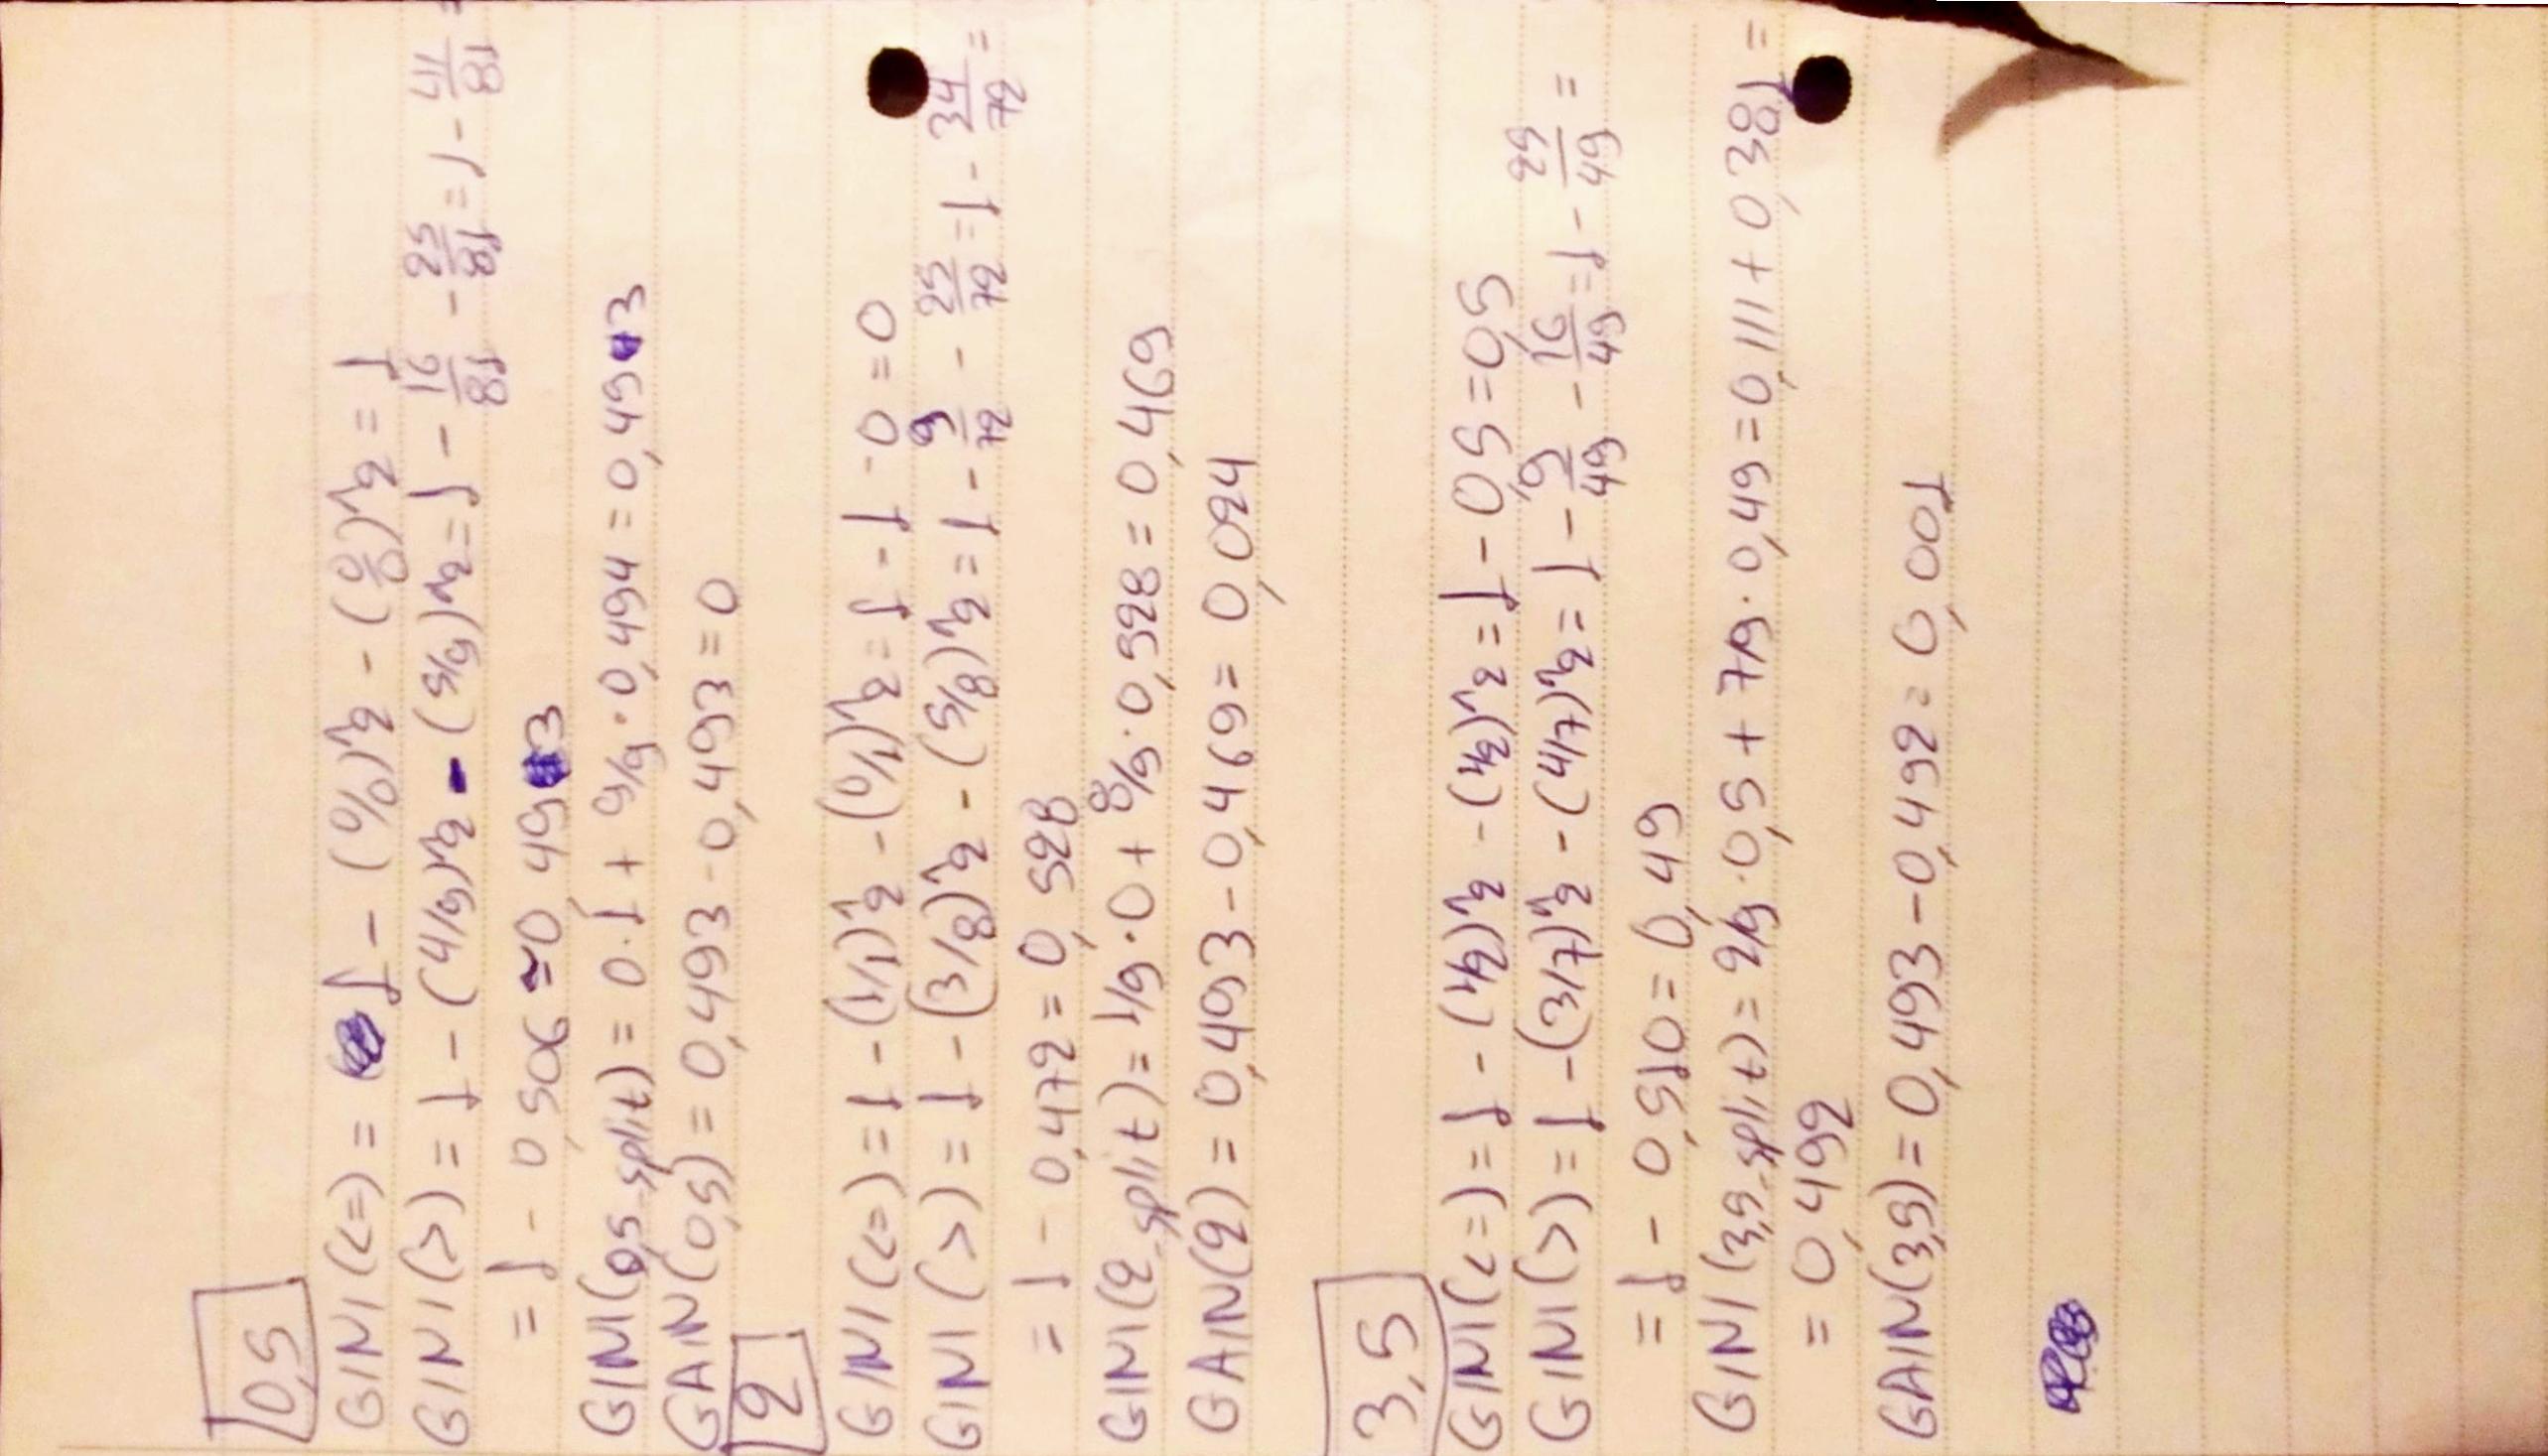 0,5
GINI(<=) = 1 - (0/0)^2 - (0/0)^2 = 1
GINI(>) = 1 - (4/9)^2 - (5/9)^2 = 1 - 16/81 - 25/81 = 1 - 41/81 =
= 1 - 0,506 ≃ 0,493
GINI(0,5_split) = 0·1 + 9/9·0,494 = 0,493
GAIN(0,5) = 0,493 - 0,493 = 0
2
GINI(<=) = 1 - (1/1)^2 - (0/1)^2 = 1 - 1 - 0 = 0
GINI(>) = 1 - (3/8)^2 - (5/8)^2 = 1 - 9/72 - 25/72 = 1 - 34/72 =
= 1 - 0,472 = 0,528
GINI(2_split) = 1/9·0 + 8/9·0,528 = 0,469
GAIN(2) = 0,493 - 0,469 = 0,024
3,5
GINI(<=) = 1 - (1/2)^2 - (1/2)^2 = 1 - 0,5 = 0,5
GINI(>) = 1 - (3/7)^2 - (4/7)^2 = 1 - 9/49 - 16/49 = 1 - 25/49 =
= 1 - 0,510 = 0,49
GINI(3,5_split) = 2/9·0,5 + 7/9·0,49 = 0,111 + 0,381 =
= 0,492
GAIN(3,5) = 0,493 - 0,492 = 0,001